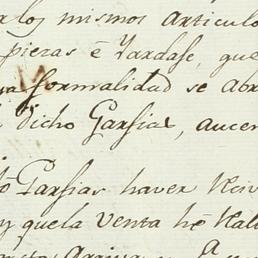 los mismos articulo
piezas é Yardase, que
formalidad se abr
dicho Garsias, aucen
Garsias haver Reciv
y quela venta hé